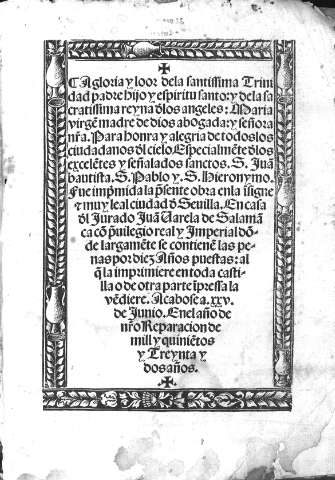 ✠
A gloria y loor dela santissima Trini
dad padre hijo y espiritu santo: y dela sa
cratissima reyna dlos angeles: Maria
virgẽ madre de dios abogada: y señora
nr̃a. Para honra y alegria de todos los
ciudadanos dl cielo. Especialmẽte dlos
excelẽtes y señalados sanctos. S. Juã
bautista. S. Pablo y. S. Hieronymo.
Fue imp̃mida la p̃sente obra enla isigne
⁊ muy leal ciudad d̃ Sevilla. En casa
dl Jurado Juã Varela de Salamã
ca cõ p̃uilegio real y Imperial dõ-
de largamẽte se contienẽ las pe-
nas por diez Años puestas: al
q̃ la imprimiere en toda casti-
lla o de otra parte ip̃ressa la
vẽdiere. Acabose a. xxv.
de Junio. Enel año de
nr̃o Reparacion de
mill y quiniẽtos
y Treynta y
dos años.
✠